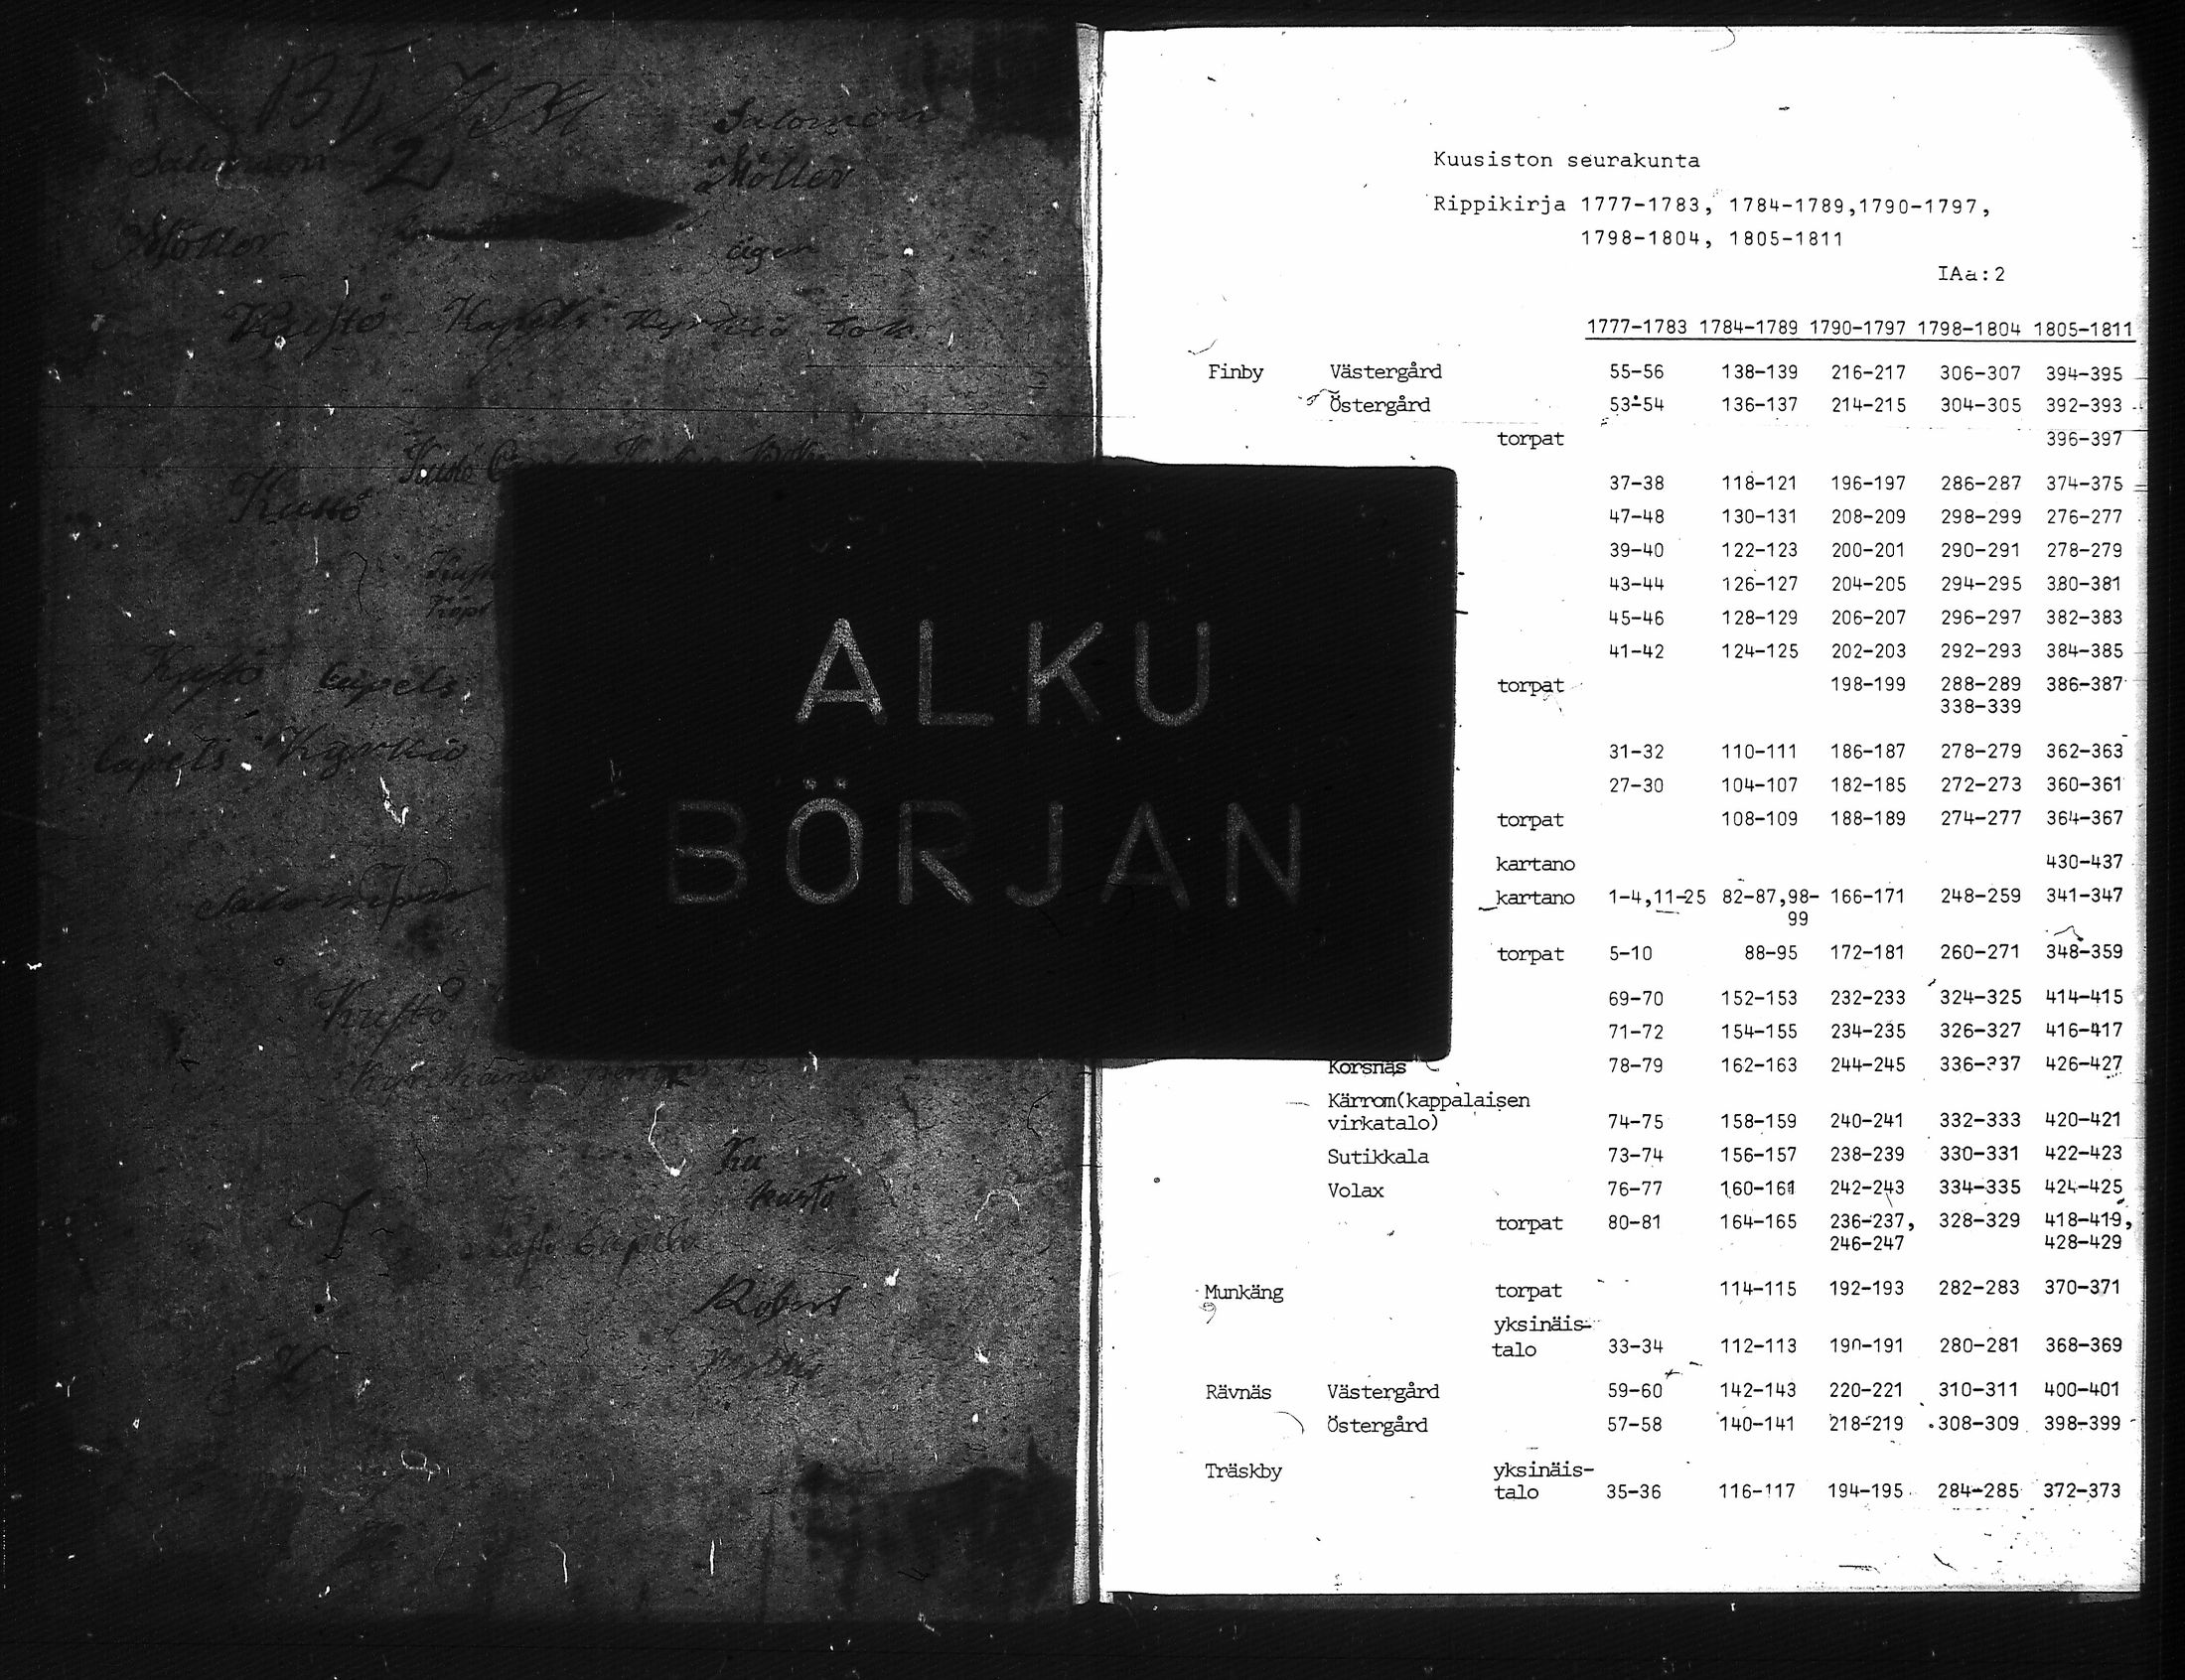 Salomon
Salomon 2
Möller
Möller
äger
Kustö Kapels Kyrkio bok
Kustö
Kustö
Capels
Capels Kyrkio
Kustö
Ku
Kusto
Robert
ALKU
BÖRJAN
Kuusiston seurakunta
Rippikirja 1777-1783, 1784-1789,1790-1797,
1798-1804, 1805-1811
IAa:2
1777-1783 1784-1789 1790-1797 1798-1804 1805-1811
Finby Västergård 55-56 138-139 216-217 306-307 394-395
Östergård 53-54 136-137 214-215 304-305 392-393
torpat 396-397
37-38 118-121 196-197 286-287 374-375
47-48 130-131 208-209 298-299 276-277
39-40 122-123 200-201 290-291 278-279
43-44 126-127 204-205 294-295 380-381
45-46 128-129 206-207 296-297 382-383
41-42 124-125 202-203 292-293 384-385
torpat 198-199 288-289 386-387
338-339
31-32 110-111 186-187 278-279 362-363
27-30 104-107 182-185 272-273 360-361
torpat 108-109 188-189 274-277 364-367
kartano 430-437
kartano 1-4,11-25 82-87,98- 166-171 248-259 341-347
99
torpat 5-10 88-95 172-181 260-271 348-359
69-70 152-153 232-233 324-325 414-415
71-72 154-155 234-235 326-327 416-417
Korsnäs 78-79 162-163 244-245 336-337 426-427
Kärrom(kappalaisen
virkatalo) 74-75 158-159 240-241 332-333 420-421
Sutikkala 73-74 156-157 238-239 330-331 422-423
Volax 76-77 160-161 242-243 334-335 424-425
torpat 80-81 164-165 236-237, 328-329 418-419,
246-247 428-429
Munkäng torpat 114-115 192-193 282-283 370-371
yksinäis-
talo 33-34 112-113 190-191 280-281 368-369
Rävnäs Västergård 59-60 142-143 220-221 310-311 400-401
Östergård 57-58 140-141 218-219 308-309 398-399
Träskby yksinäis-
talo 35-36 116-117 194-195 284-285 372-373